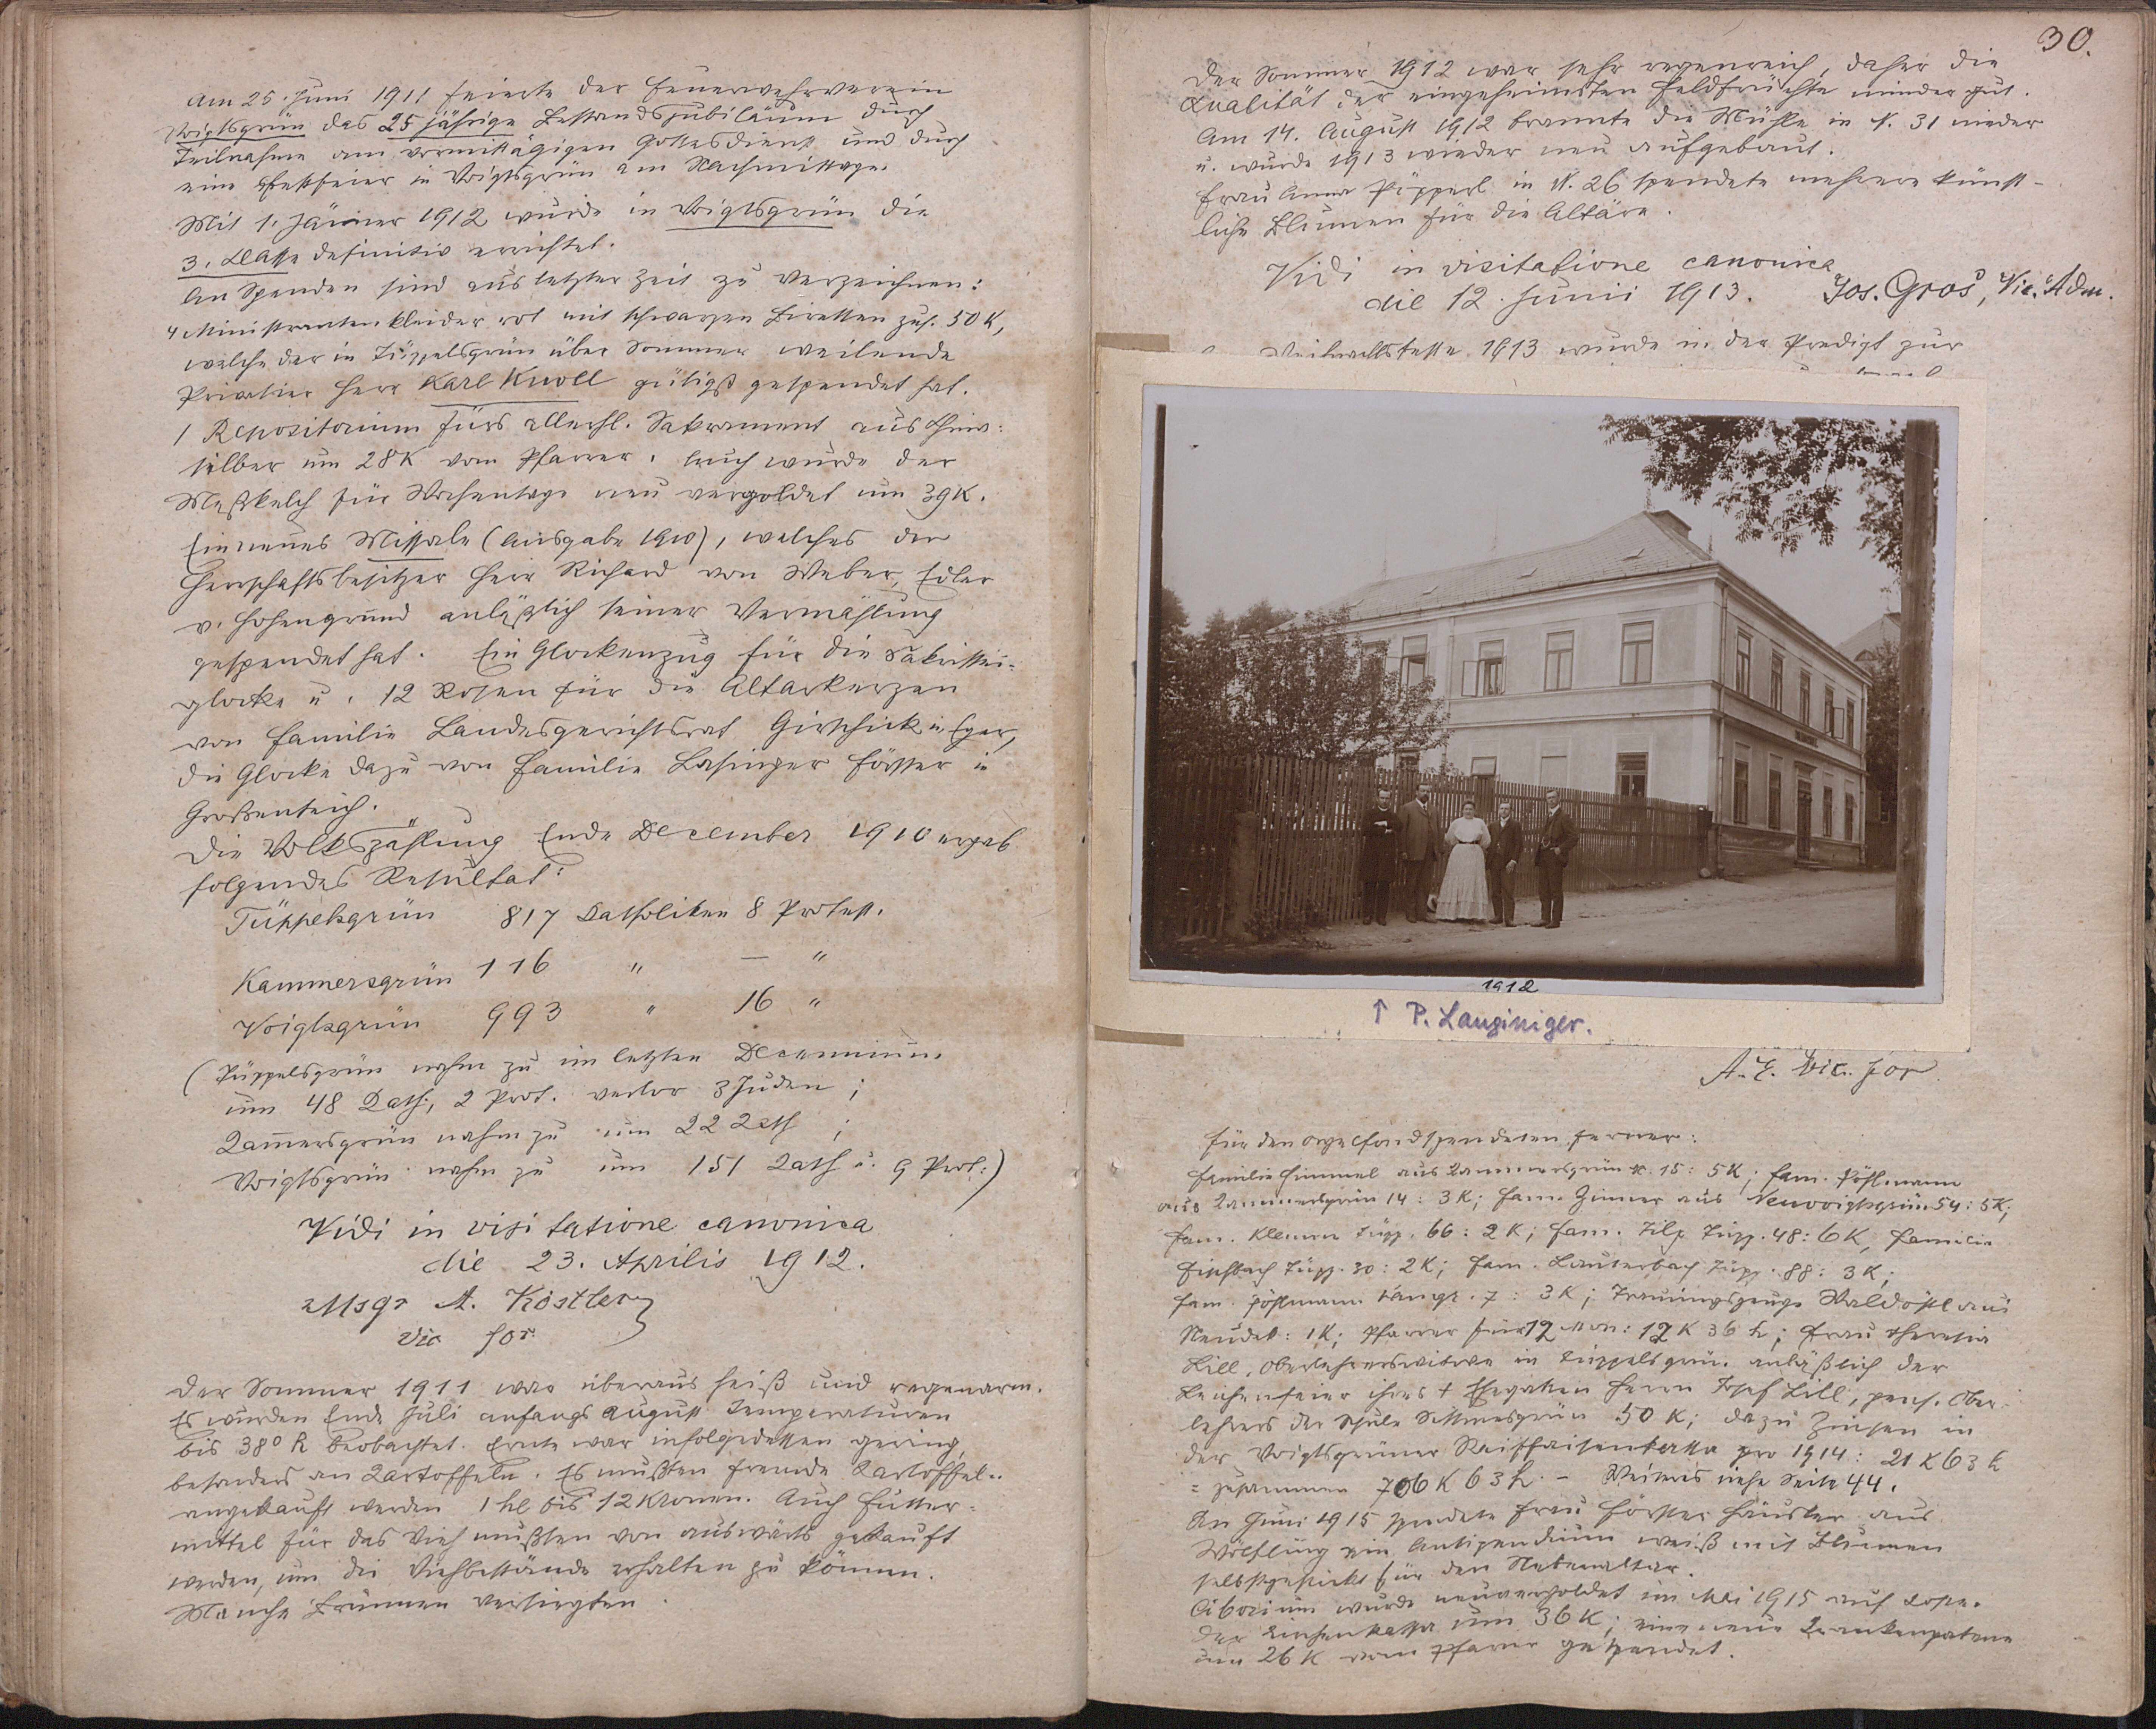 Am 25. Juni 1911 feierte der Feuerwehrverein
Voigtsgrün das 25 jährige Bestandsjubiläum durch
Teilnahme am vormittägigen Gottesdienst und durch
eine Festfeier in Voigtsgrün am Nachmittage.
Mit 1. Jänner 1912 wurde in Voigtsgrün die
3. Klasse definitiv errichtet.
An Spenden sind aus letzter Zeit zu verzeichnen:
4 Ministrantenkleider rot mit schwarzen Biretten zus. 50 K,
welche der in Tüppelsgrün über Sommer weilende
Privatier Herr Karl Knoll gütigst gespendet hat.
1 Repositorium fürs allerhl. Sakrament aus China-
silber um 28 K vom Pfarrer. Auch wurde der
Meßkelch für Wochentage neu vergoldet um 39 K.
Ein neues Missale (Ausgabe 1910), welches der
Herrschaftsbesitzer Herr Richard von Weber, Edler
v. Hohengrund anläßlich seiner Vermählung
gespendet hat. Ein Glockenzug für die Sakristei-
glocke u. 12 Rosen für die Altarkerzen
von Familie Landesgerichtsrat Girschick in Eger,
die Glocke dazu von Familie Lasinger Förster in
Großenteich.
Die Volkszählung Ende December 1910 ergab
folgendes Resultat:
Tüppelsgrün 817 Katholiken 8 Protest.
Kammersgrün 116 " — "
Voigtsgrün 993 " 16 "
(Tüppelsgrün nahm zu im letzten Decennium
um 48 Kath., 2 Prot. verlor 3 Juden;
Kam̅ersgrün nahm zu um 22 Kath ;
Voigtsgrün nahm zu um 151 Kath u. 9 Prot.)
Vidi in visitatione canonica
die 23. Aprilis 1912.
Msgr A. Köstler
vic for.
Der Sommer 1911 war überaus heiß und regenarm.
Es wurden Ende Juli anfangs August Temperaturen
bis 38° R beobachtet. Ernte war infolgedessen gering,
besonders an Kartoffeln. Es mußten fremde Kartoffel
angekauft werden 1 hl bis 12 Kronen. Auch Futter-
mittel für das Vieh mußten von auswärts gekauft
werden, um die Viehbestände erhalten zu können.
Manche Brunnen versiegten.
30.
Der Sommer 1912 war sehr regenreich, daher die
Qualität der eingeheimsten Feldfrüchte minder gut.
Am 14. August 1912 brannte die Mühle in N. 31 nieder
u. wurde 1913 wieder neu aufgebaut.
Frau Anna Pöpperl in N. 26 spendete mehrere künst-
liche Blumen für die Altäre.
Vidi in visitatione canonica
die 12. Junii 1913. Jos. Gros, Vic. Adm.
Weihnachtsfeste 1913 wurde in der Predigt zur
1912
↑ P. Lauginiger.
A. E. Vic. for
Für den Orgelfond spendeten ferner:
Familie Himmel aus Kammersgrün N. 15: 5 K; Fam. Pöhlmann
aus Kammersgrün 14: 3 K; Fam. Zinner aus Neuvoigtsgrün 54: 5 K;
Fam. Klemm Tüpp. 66: 2 K; Fam. Tilp Tüpp. 48: 6 K, Familie
Fischbach Tüpp. 30: 2 K; Fam. Lauterbach Tüpp. 88: 3 K;
Fam. Pöhlmann 7: 3 K; Trauungszeuge aus
Neudek: 1 K; Pfarrer für 12 Mon: 12 K 36 h; Frau Theresia
Lill, Oberlehrerswitwe in Tüppelsgrün anläßlich der
Leichenfeier ihres † Ehegatten Herrn Josef Lill, pens. Ober-
lehrers der Schule Sittmesgrün 50 K; dazu Zinsen in
der Voigtsgrüner Raiffeisenkassa pro 1914: 21 K 63 h
= zusammen 706 K 63 h. – Weiteres siehe Seite 44.
Im Juni 1915 spendete Frau Förster Häusler aus
Wölfling ein Antipendium weiß mit Blumen
selbstgestickt für den Nebenaltar.
Ciborium wurde neuvergoldet im Mai 1915 auf Kosten
der Kirchenkassa um 36 K; eine neue Krankenpatene
um 26 K vom Pfarrer gespendet.